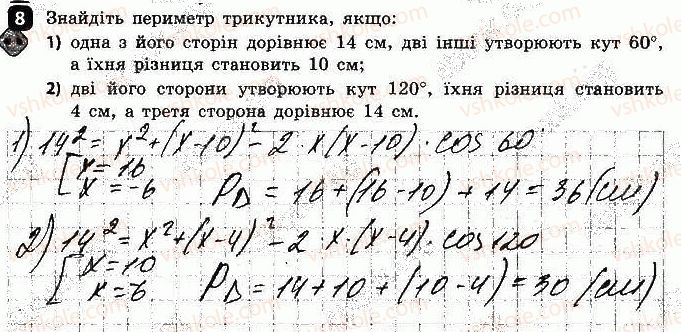 8 Знайдіть периметр трикутника, якщо:
1) одна з його сторін дорівнює 14 см, дві інші утворюють кут 60°,
а їхня різниця становить 10 см;
2) дві його сторони утворюють кут 120°, їхня різниця становить
4 см, а третя сторона дорівнює 14 см.
1) 14² = x² + (x-10)² - 2 · x (x-10) · cos 60
[x = 16
x = -6 P△ = 16 + (16-10) + 14 = 36 (см)
2) 14² = x² + (x-4)² - 2 · x · (x-4) · cos 120
[x = 10
x = 6 P△ = 14 + 10 + (10-4) = 30 (см)